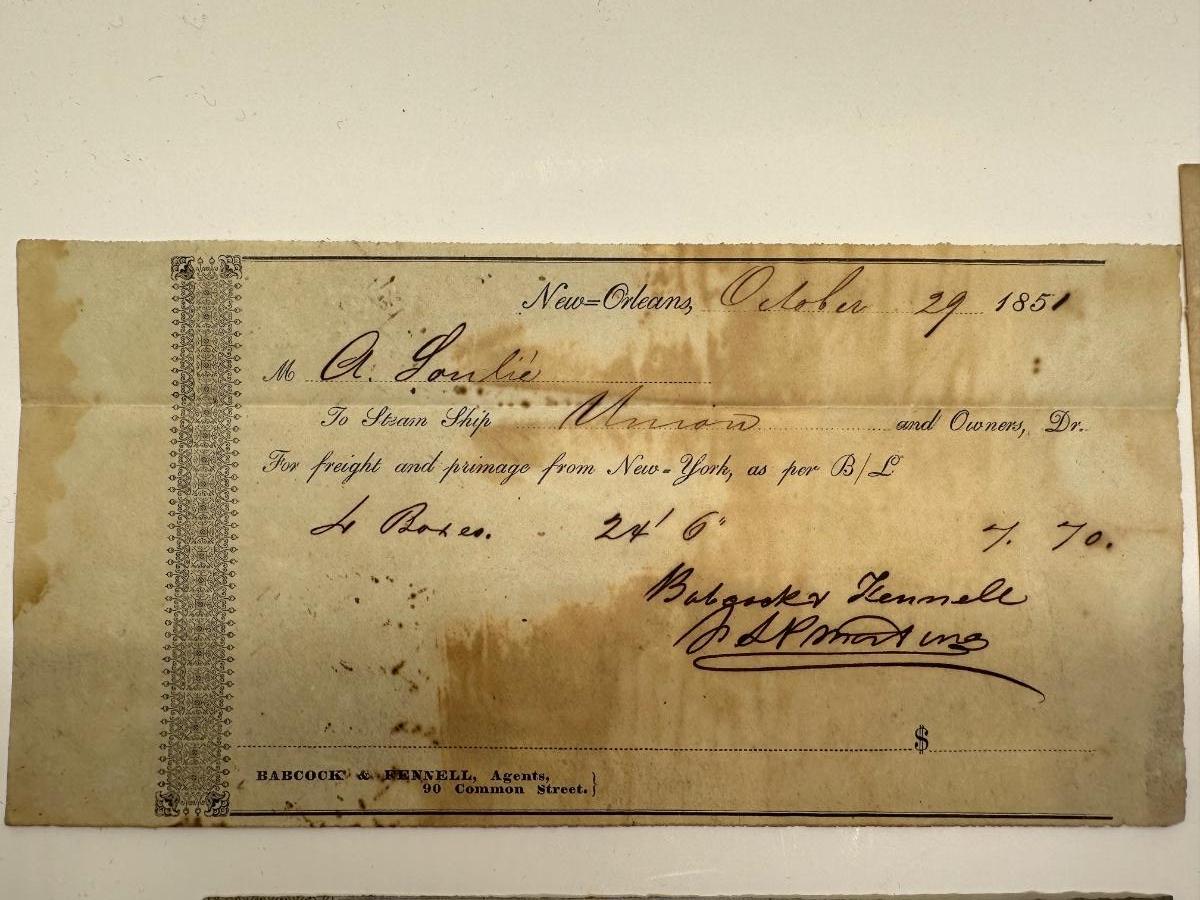 New=Orleans, October 29 1851
M A. Soulié
To Steam Ship Union and Owners, Dr.
For freight and primage from New=York, as per B/L
4 Boxes. 24' 6" 7. 70.
Babcock & Fennell
$
BABCOCK & FENNELL, Agents,
90 Common Street.}